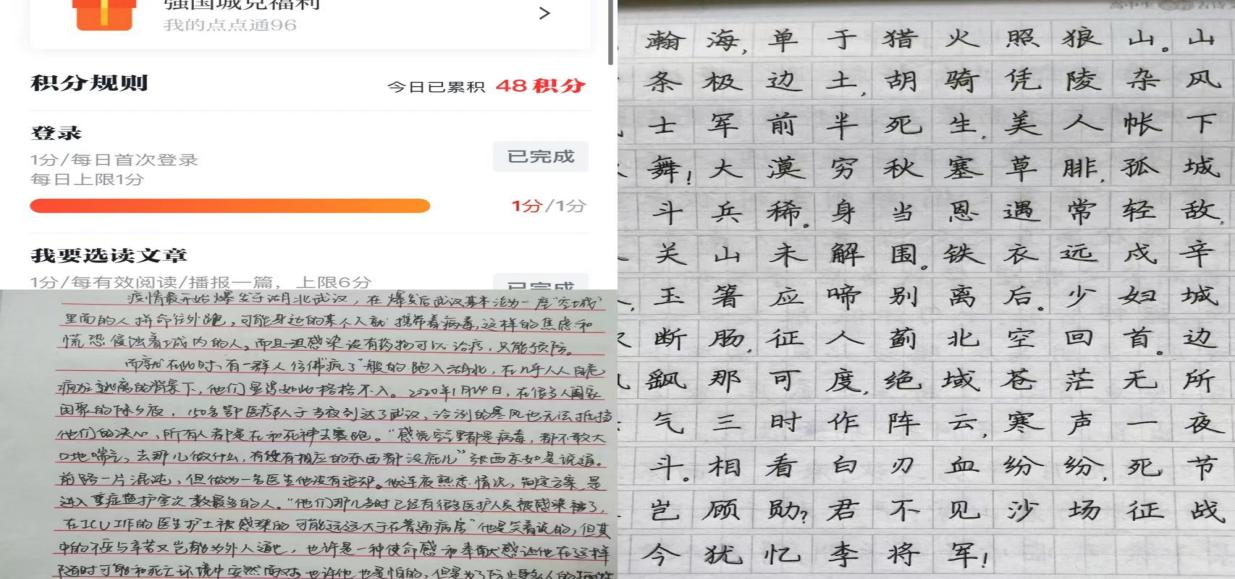 强国城兑福利
我的点点通96
积分规则
今日已累积 48 积分
登录
1分/每日首次登录
每日上限1分
已完成
1分/1分
我要选读文章
1分/每有效阅读/播报一篇，上限6分
已完成
疫情最开始爆发于湖北武汉，在爆发后武汉基本沦为一座"空城"
里面的人拼命往外跑，可能身边的某个人就携带着病毒，这样的焦虑和
恐慌侵蚀着城内的人，而且感染没有药物可以治疗，只能预防。
而就在此时，有一群人仿佛疯了一般的跑入湖北，在几乎人人自危
的背景下，他们显得如此格格不入。2020年1月24日，在很多人阖家
团聚的除夕夜，150名鄂医疗队于当夜到达了武汉，冷冽的寒风也无法抵挡
他们的决心，所有人都是在和死神去赛跑。"感觉空气里都是病毒，都不敢大
口地喘气，去那儿做什么，有没有相应的东西都没底儿"张西京如是说道。
前路一片混沌，但做为一名医生他没有退却。熟悉情况，制定方案，是
进入重症监护室次数最多的人。"他们那儿当时已经有很多医护人员被感染了，
在ICU工作的医生护士被感染的可能远远大于在普通病房"他是笑着说的，但其
中的不安与辛苦又岂能为外人道也，也许是一种使命感和奉献感让他在这样
随时可能和死亡环境中安然面对，也许他也是怕的，但是为了
瀚海，单于猎火照狼山。山
条极边土，胡骑凭陵杂风
士军前半死生，美人帐下
舞！大漠穷秋塞草腓，孤城
斗兵稀。身当恩遇常轻敌，
关山未解围。铁衣远戍辛
玉箸应啼别离后。少妇城
断肠，征人蓟北空回首。边
飘那可度，绝域苍茫无所
气三时作阵云，寒声一夜
斗。相看白刃血纷纷，死节
岂顾勋？君不见沙场征战
今犹忆李将军！